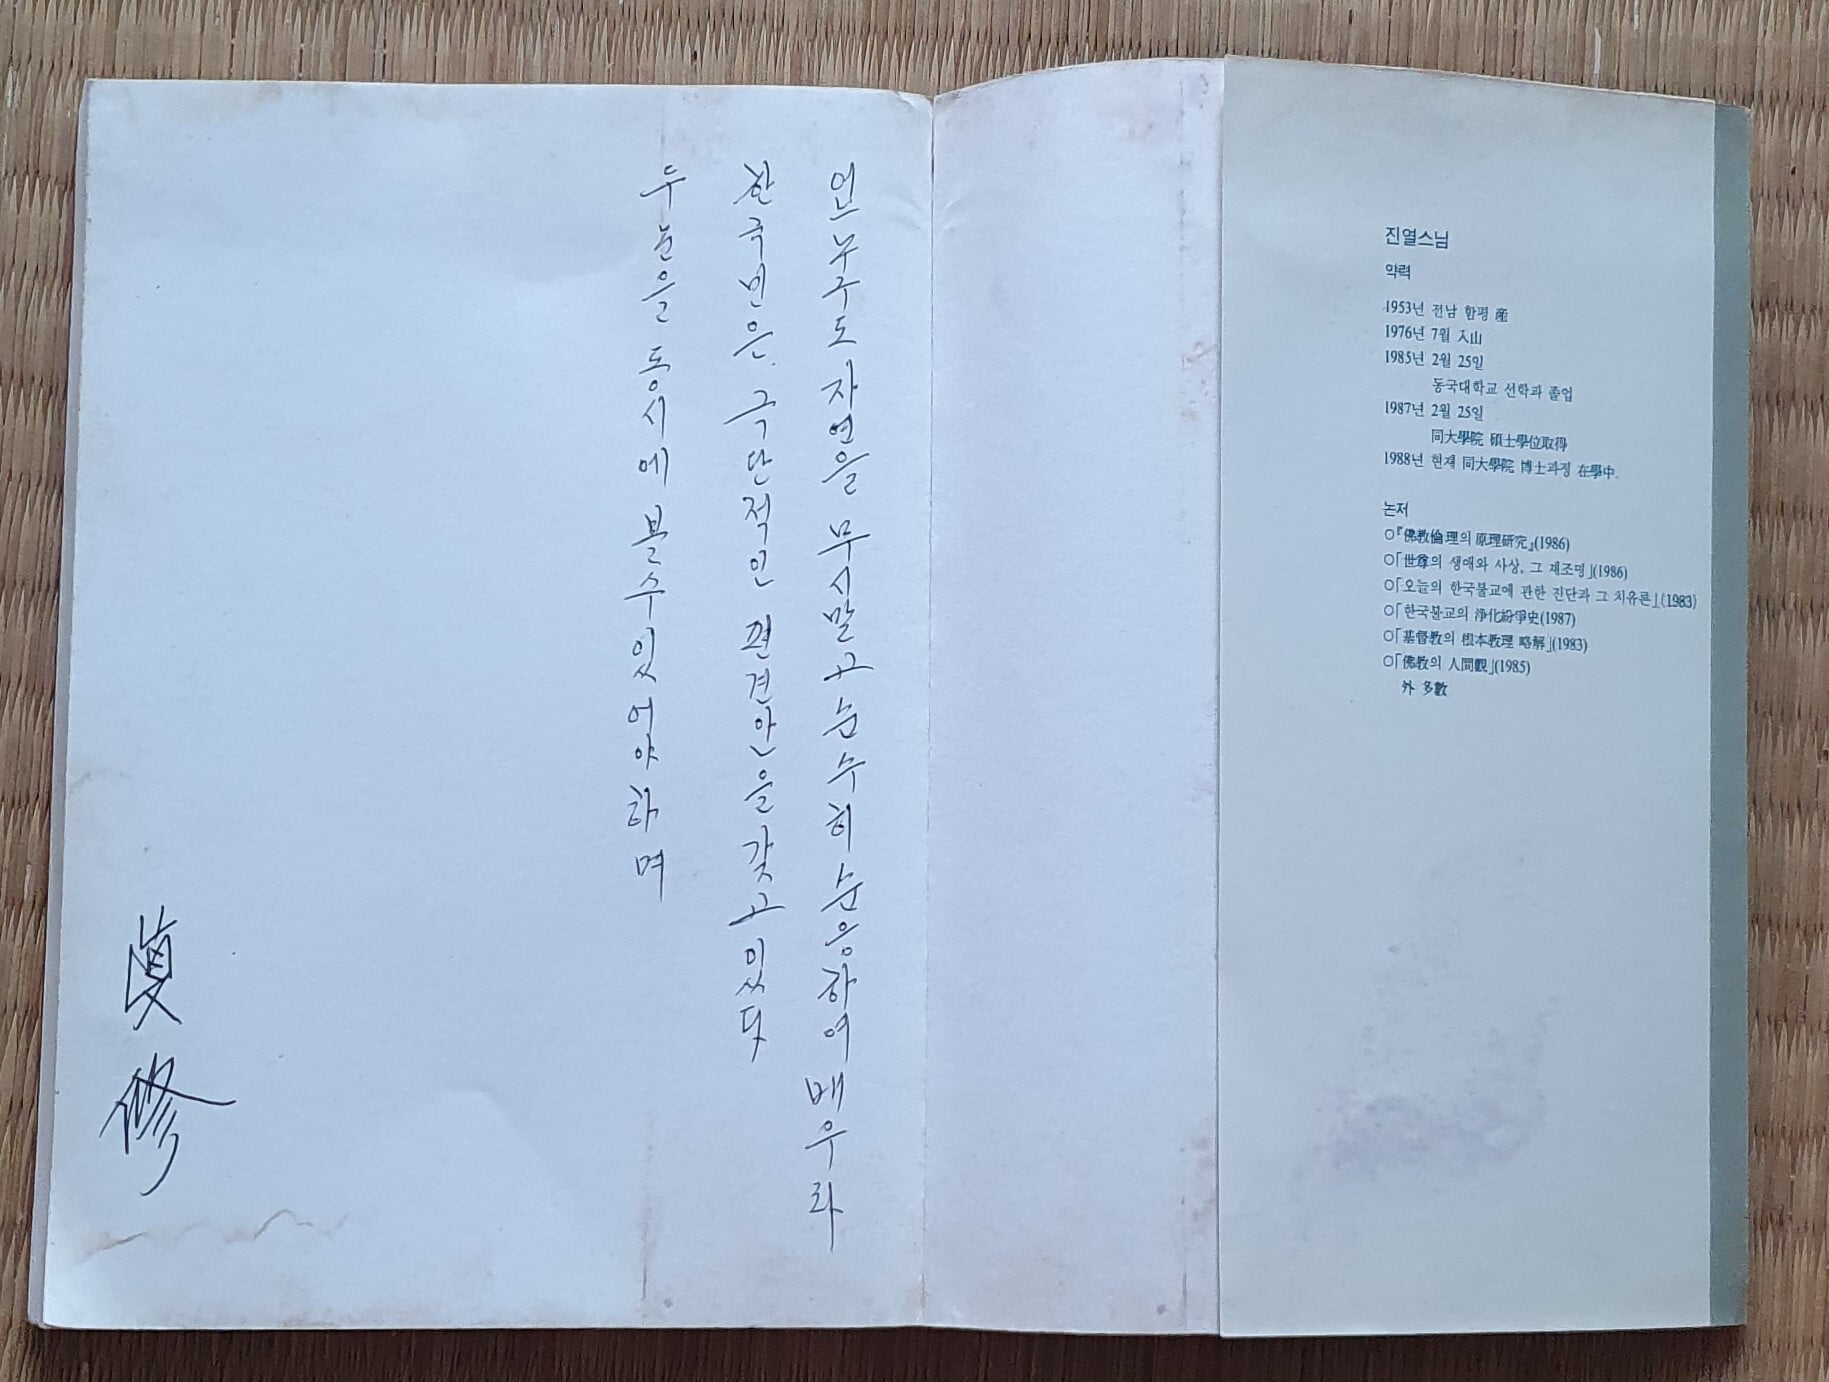 언누구도 자연을 무시말고 순수히 순응하여 배우라
한국민은. 극단적인 편견안을 갖고 있다
두눈을 동시에 볼수있어야하며
眞
修
진열스님
약력
1953년 전남 함평 産
1976년 7월 入山
1985년 2월 25일
동국대학교 선학과 졸업
1987년 2월 25일
同大學院 碩士學位取得
1988년 현재 同大學院 博士과정 在學中.
논저
○『佛敎倫理의 原理硏究』(1986)
○「世尊의 생애와 사상, 그 재조명」(1986)
○「오늘의 한국불교에 관한 진단과 그 치유론」(1983)
○「한국불교의 淨化紛爭史(1987)
○「基督敎의 根本敎理 略解」(1983)
○「佛敎의 人間觀」(1985)
外 多數